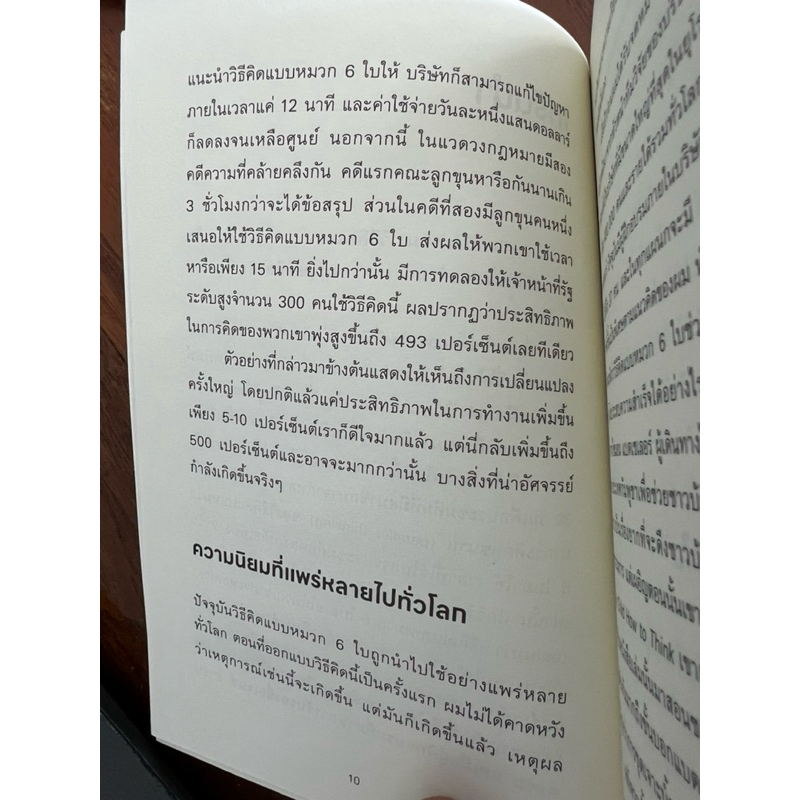 แนะนำวิธีคิดแบบหมวก 6 ใบให้ บริษัทก็สามารถแก้ไขปัญหา
ภายในเวลาแค่ 12 นาที และค่าใช้จ่ายวันละหนึ่งแสนดอลลาร์
ก็ลดลงจนเหลือศูนย์ นอกจากนี้ ในแวดวงกฎหมายมีสอง
คดีความที่คล้ายคลึงกัน คดีแรกคณะลูกขุนหารือกันนานเกิน
3 ชั่วโมงกว่าจะได้ข้อสรุป ส่วนในคดีที่สองมีลูกขุนคนหนึ่ง
เสนอให้ใช้วิธีคิดแบบหมวก 6 ใบ ส่งผลให้พวกเขาใช้เวลา
หารือเพียง 15 นาที ยิ่งไปกว่านั้น มีการทดลองให้เจ้าหน้าที่รัฐ
ระดับสูงจำนวน 300 คนใช้วิธีคิดนี้ ผลปรากฏว่าประสิทธิภาพ
ในการคิดของพวกเขาพุ่งสูงขึ้นถึง 493 เปอร์เซ็นต์เลยทีเดียว
ตัวอย่างที่กล่าวมาข้างต้นแสดงให้เห็นถึงการเปลี่ยนแปลง
ครั้งใหญ่ โดยปกติแล้วแค่ประสิทธิภาพในการทำงานเพิ่มขึ้น
เพียง 5-10 เปอร์เซ็นต์เราก็ดีใจมากแล้ว แต่นี่กลับเพิ่มขึ้นถึง
500 เปอร์เซ็นต์และอาจจะมากกว่านั้น บางสิ่งที่น่าอัศจรรย์
กำลังเกิดขึ้นจริงๆ
ความนิยมที่แพร่หลายไปทั่วโลก
ปัจจุบันวิธีคิดแบบหมวก 6 ใบถูกนำไปใช้อย่างแพร่หลาย
ทั่วโลก ตอนที่ออกแบบวิธีคิดนี้เป็นครั้งแรก ผมไม่ได้คาดหวัง
ว่าเหตุการณ์เช่นนี้จะเกิดขึ้น แต่มันก็เกิดขึ้นแล้ว เหตุผล
10
และในทุกแผนกจะมี
แนวคิดของผม
หมวก 6 ใบช่วย
ความสำเร็จได้อย่างไร
ผู้เดินทาง
เพื่อช่วยชาวบ้
ยากที่จะดึงชาวบ้
ตอนนั้นเขา
How to Think เขา